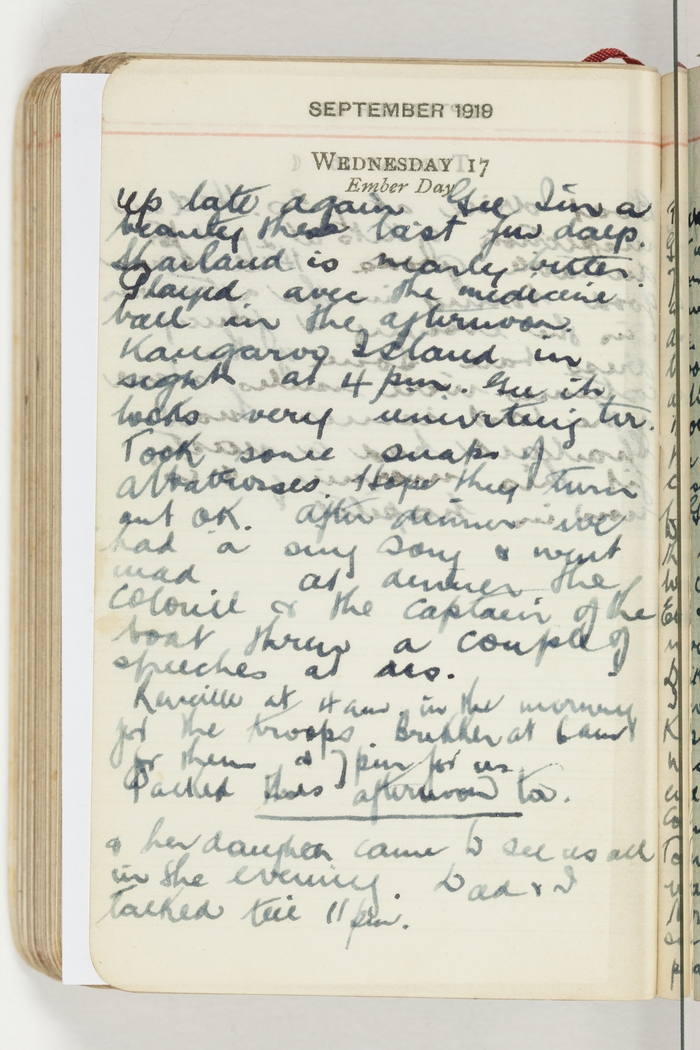 SEPTEMBER 1919
WEDNESDAY 17
Ember Day
up late again Gee I'm a
beauty these last few days.
Shailand is nearly better.
Played avec the medicine
ball in the afternoon.
Kangaroo Island in
sight at 4 pm. Gee it
looks very uninviting too.
Took some snaps of
albatrosses. Hope they turn
out OK. After dinner we
had a sing song & went
mad at dinner the
Colonel & the Captain of the
boat threw a couple of
speeches at us.
Reveille at 4 am. in the morning
for the troops Brekker at 6 am
for them & 7 pm for us
Packed this afternoon too.
& her daughter came to see us all
in the evening. Dad & I
talked till 11 pm.